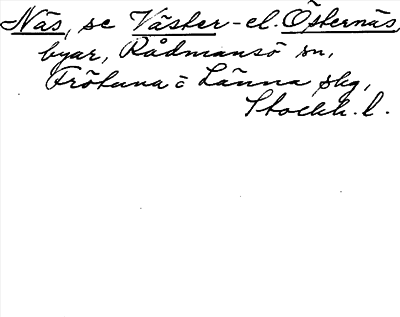 Näs, se Väster- el. Östernäs
byar, Rådmansö sn,
Frötuna o Länna skg,
Stockh. l.